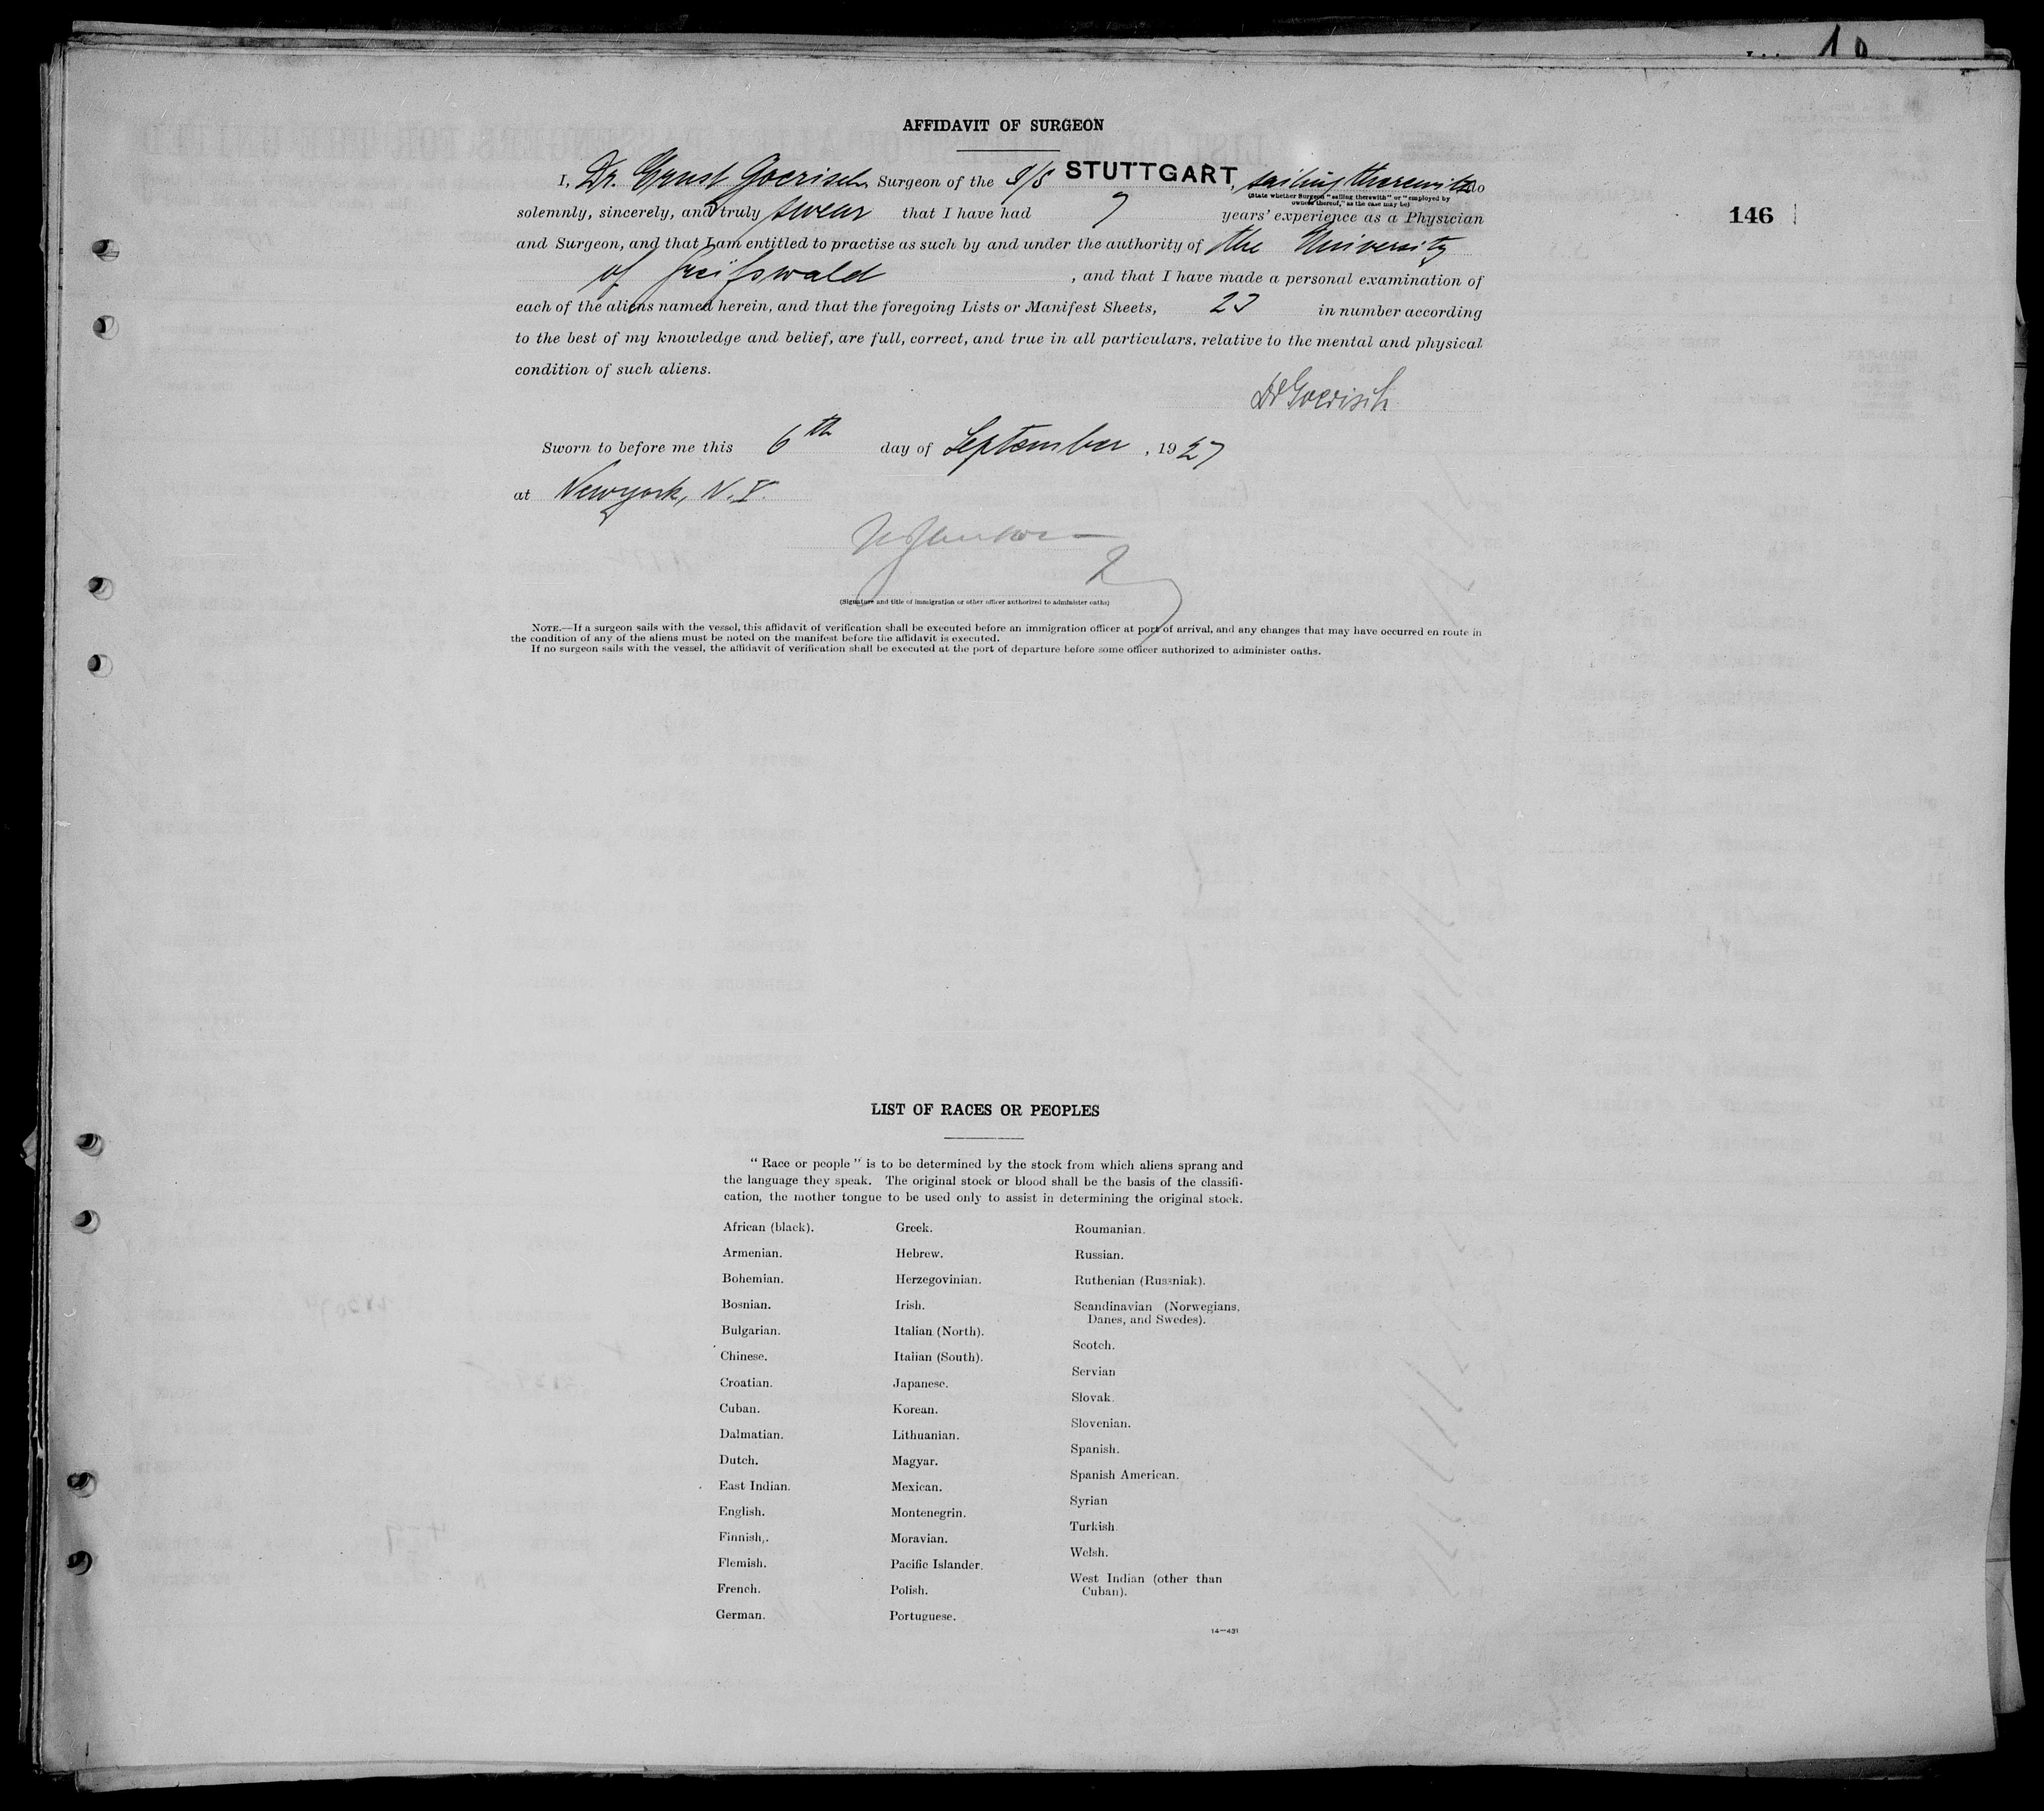 AFFIDAVIT OF SURGEON
I, Dr. Ernst Goerisch, Surgeon of the S/S STUTTGART, sailing therewith do
(State whether Surgeon "sailing therewith" or "employed by
owners thereof," as the case may be)
solemnly, sincerely, and truly swear that I have had 7 years' experience as a Physician
146
and Surgeon, and that I am entitled to practise as such by and under the authority of the University
of Greifswald, and that I have made a personal examination of
each of the aliens named herein, and that the foregoing Lists or Manifest Sheets, 23 in number according
to the best of my knowledge and belief, are full, correct, and true in all particulars, relative to the mental and physical
condition of such aliens.
Dr Goerisch
Sworn to before me this 6th day of September, 1927
at Newyork, N.Y.
(Signature and title of immigration or other officer authorized to administer oaths)
NOTE.—If a surgeon sails with the vessel, this affidavit of verification shall be executed before an immigration officer at port of arrival, and any changes that may have occurred en route in
the condition of any of the aliens must be noted on the manifest before the affidavit is executed.
If no surgeon sails with the vessel, the affidavit of verification shall be executed at the port of departure before some officer authorized to administer oaths.
LIST OF RACES OR PEOPLES
"Race or people" is to be determined by the stock from which aliens sprang and
the language they speak. The original stock or blood shall be the basis of the classifi-
cation, the mother tongue to be used only to assist in determining the original stock.
African (black).
Armenian.
Bohemian.
Bosnian.
Bulgarian.
Chinese.
Croatian.
Cuban.
Dalmatian.
Dutch.
East Indian.
English.
Finnish.
Flemish.
French.
German.
Greek.
Hebrew.
Herzegovinian.
Irish.
Italian (North).
Italian (South).
Japanese.
Korean.
Lithuanian.
Magyar.
Mexican.
Montenegrin.
Moravian.
Pacific Islander.
Polish.
Portuguese.
Roumanian.
Russian.
Ruthenian (Russniak).
Scandinavian (Norwegians,
Danes, and Swedes).
Scotch.
Servian
Slovak.
Slovenian.
Spanish.
Spanish American.
Syrian
Turkish
Welsh.
West Indian (other than
Cuban).
14—431